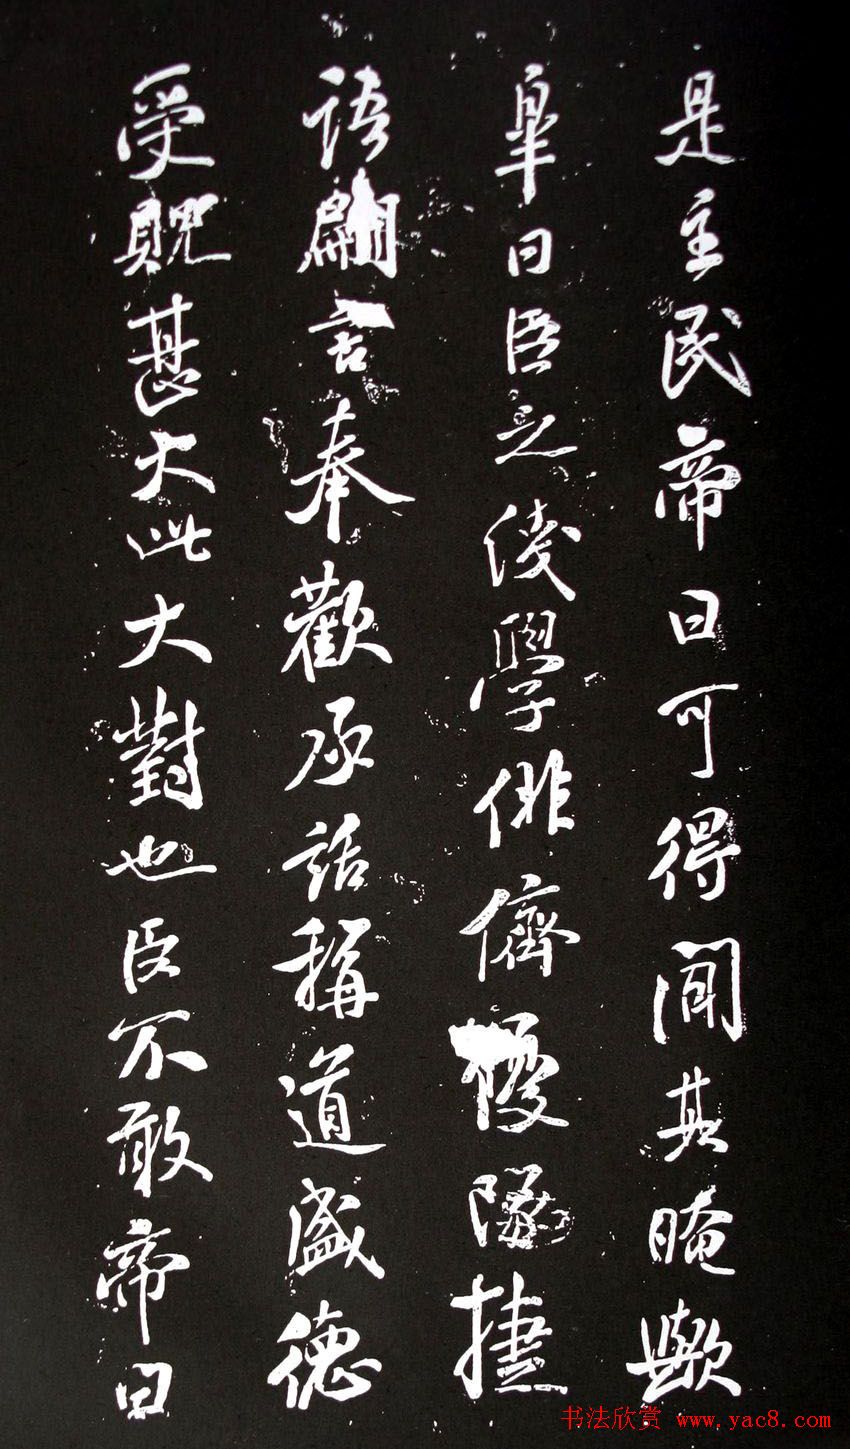 是主民帝曰可得聞其晻歟
皐曰臣之淺學俳儕優隊捷
語翩言奉歡承話稱道盛德
受貺甚大此大對也臣不敢帝曰
书法欣赏 www.yac8.com